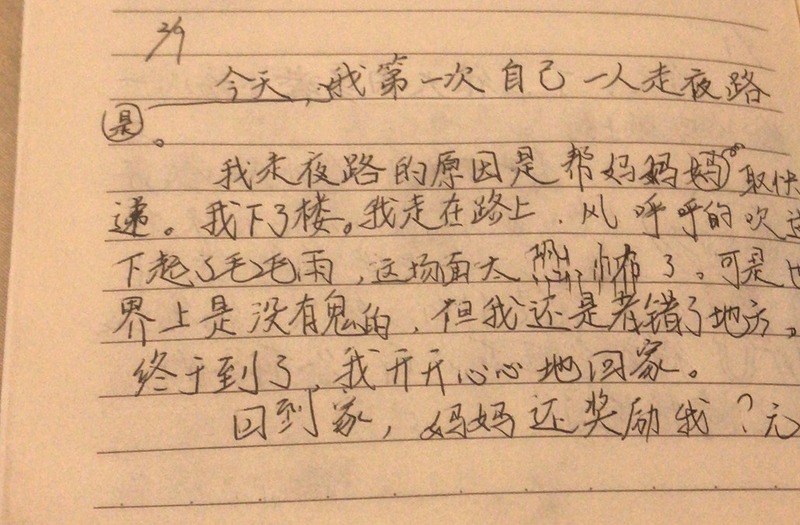 2/9
今天,我第一次自己一人走夜路
是。
我走夜路的原因是帮妈妈妈取快
递。我下了楼。我走在路上,风呼呼的吹
下起了毛毛雨,这场面太恐怖了。可是
界上是没有鬼的,但我还是走错了地方。
终于到了,我开开心心地回家。
回到家,妈妈还奖励我?元